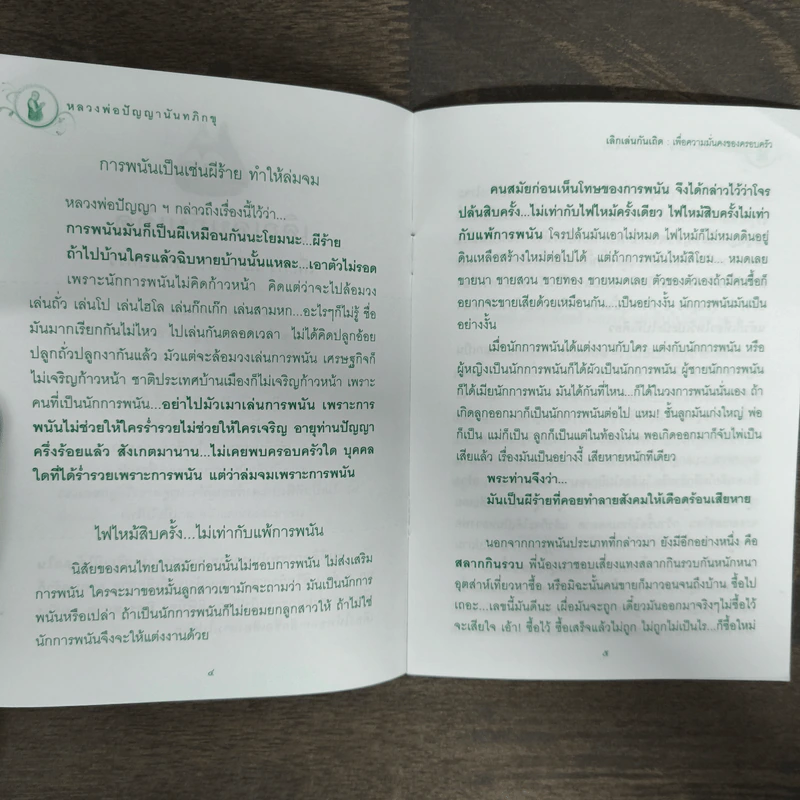 หลวงพ่อปัญญานันทภิกขุ
การพนันเป็นเช่นผีร้าย ทำให้ล่มจม
หลวงพ่อปัญญา ฯ กล่าวถึงเรื่องนี้ไว้ว่า...
การพนันมันก็เป็นผีเหมือนกันนะโยมนะ...ผีร้าย
ถ้าไปบ้านใครแล้วฉิบหายบ้านนั้นแหละ...เอาตัวไม่รอด
เพราะนักการพนันไม่คิดก้าวหน้า คิดแต่ว่าจะไปล้อมวง
เล่นถั่ว เล่นโป เล่นไฮโล เล่นกั๊กเก๊ก เล่นสามหก...อะไรๆก็ไม่รู้ ชื่อ
มันมากเรียกกันไม่ไหว ไปเล่นกันตลอดเวลา ไม่ได้คิดปลูกอ้อย
ปลูกถั่วปลูกงากันแล้ว มัวแต่จะล้อมวงเล่นการพนัน เศรษฐกิจก็
ไม่เจริญก้าวหน้า ชาติประเทศบ้านเมืองก็ไม่เจริญก้าวหน้า เพราะ
คนที่เป็นนักการพนัน...อย่าไปมัวเมาเล่นการพนัน เพราะการ
พนันไม่ช่วยให้ใครร่ำรวยไม่ช่วยให้ใครเจริญ อายุท่านปัญญา
ครึ่งร้อยแล้ว สังเกตมานาน...ไม่เคยพบครอบครัวใด บุคคล
ใดที่ได้ร่ำรวยเพราะการพนัน แต่ว่าล่มจมเพราะการพนัน
ไฟไหม้สิบครั้ง...ไม่เท่ากับแพ้การพนัน
นิสัยของคนไทยในสมัยก่อนนั้นไม่ชอบการพนัน ไม่ส่งเสริม
การพนัน ใครจะมาขอหมั้นลูกสาวเขามักจะถามว่า มันเป็นนักการ
พนันหรือเปล่า ถ้าเป็นนักการพนันก็ไม่ยอมยกลูกสาวให้ ถ้าไม่ใช่
นักการพนันจึงจะให้แต่งงานด้วย
๔
เลิกเล่นกันเถิด : เพื่อความมั่นคงของครอบครัว
คนสมัยก่อนเห็นโทษของการพนัน จึงได้กล่าวไว้ว่าโจร
ปล้นสิบครั้ง...ไม่เท่ากับไฟไหม้ครั้งเดียว ไฟไหม้สิบครั้งไม่เท่า
กับแพ้การพนัน โจรปล้นมันเอาไม่หมด ไฟไหม้ก็ไม่หมดดินอยู่
ดินเหลือสร้างใหม่ต่อไปได้ แต่ถ้าการพนันไหม้สิโยม... หมดเลย
ขายนา ขายสวน ขายทอง ขายหมดเลย ตัวของตัวเองถ้ามีคนซื้อก็
อยากจะขายเสียด้วยเหมือนกัน...เป็นอย่างงั้น นักการพนันมันเป็น
อย่างงั้น
เมื่อนักการพนันได้แต่งงานกับใคร แต่งกับนักการพนัน หรือ
ผู้หญิงเป็นนักการพนันก็ได้ผัวเป็นนักการพนัน ผู้ชายนักการพนัน
ก็ได้เมียนักการพนัน มันได้กันที่ไหน...ก็ได้ในวงการพนันนั่นเอง ถ้า
เกิดลูกออกมาก็เป็นนักการพนันต่อไป แหม! ชั้นลูกมันเก่งใหญ่ พ่อ
ก็เป็น แม่ก็เป็น ลูกก็เป็นแต่ในท้องโน่น พอเกิดออกมาก็จับไพ่เป็น
เสียแล้ว เรื่องมันเป็นอย่างงี้ เสียหายหนักทีเดียว
พระท่านจึงว่า...
มันเป็นผีร้ายที่คอยทำลายสังคมให้เดือดร้อนเสียหาย
นอกจากการพนันประเภทที่กล่าวมา ยังมีอีกอย่างหนึ่ง คือ
สลากกินรวบ พี่น้องเราชอบเสี่ยงแทงสลากกินรวบกันหนักหนา
อุตส่าห์เที่ยวหาซื้อ หรือมิฉะนั้นคนขายก็มาวอนจนถึงบ้าน ซื้อไป
เถอะ...เลขนี้มันดีนะ เผื่อมันจะถูก เดี๋ยวมันออกมาจริงๆไม่ซื้อไว้
จะเสียใจ เอ้า! ซื้อไว้ ซื้อเสร็จแล้วไม่ถูก ไม่ถูกไม่เป็นไร...ก็ซื้อใหม่
๕